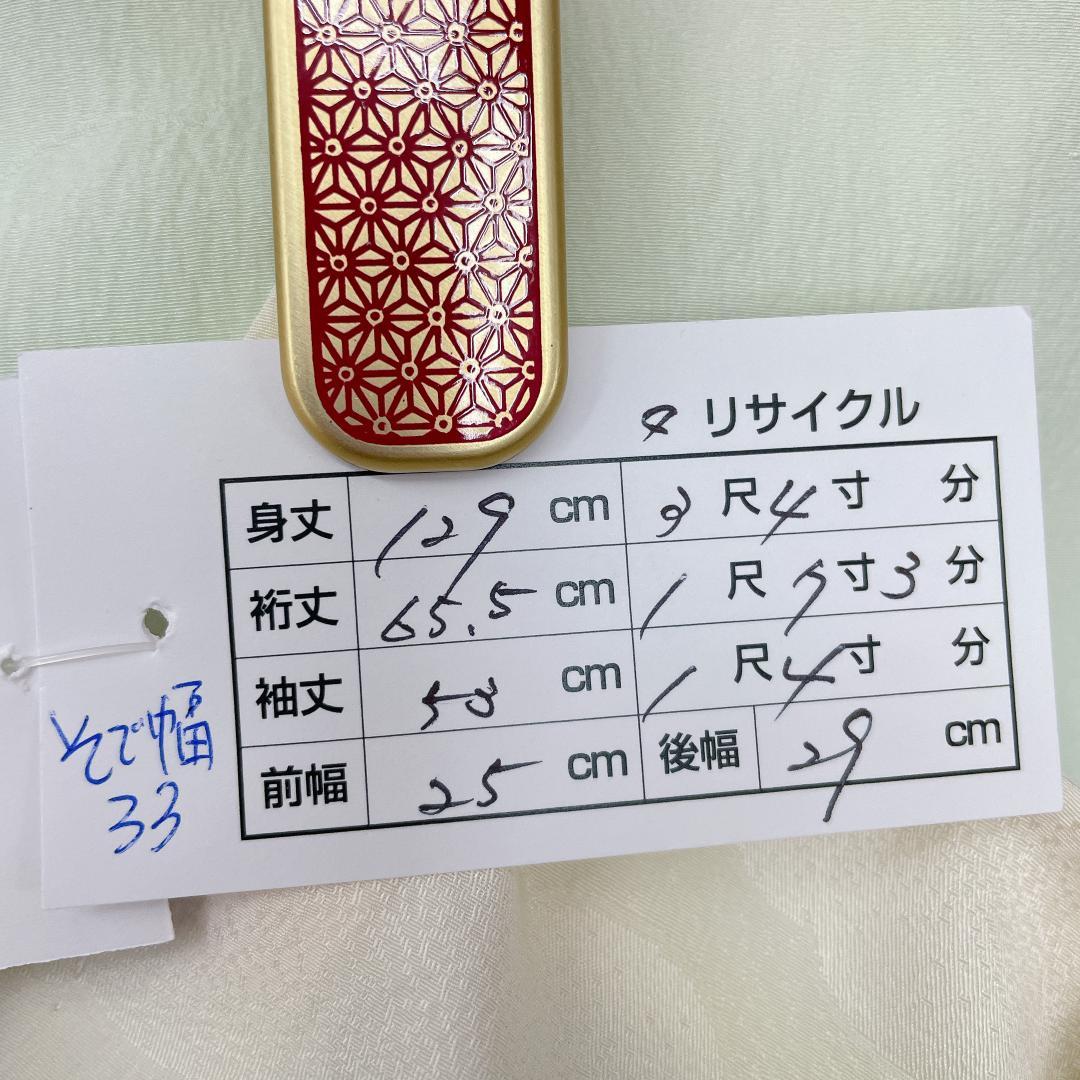 リサイクル
身丈 129 cm 3 尺 4 寸 分
裄丈 65.5 cm 1 尺 7 寸 3 分
袖丈 53 cm 1 尺 4 寸 分
前幅 25 cm 後幅 29 cm
そで幅
33